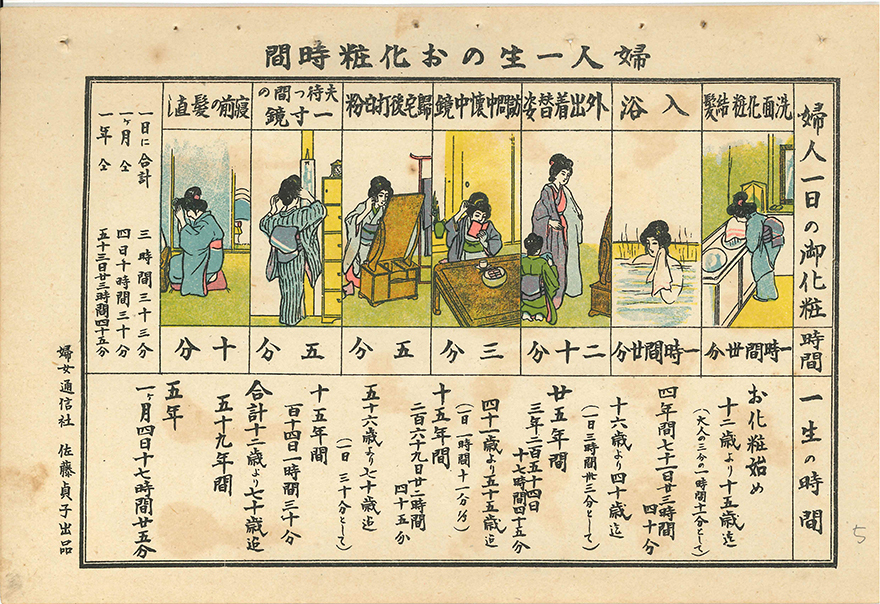 婦人一生のお化粧時間
婦人一日の御化粧時間
洗面化粧結髪
入浴
外出着替姿
訪問中懐中鏡
歸宅後打白粉
夫待つ間の
一寸鏡
寝前の髪直し
一時間丗分
一時間廿分
二十分
三分
五分
五分
十分
一日に合計 三時間三十三分
一ヶ月仝 四日十時間三十分
一年仝 五十三日廿三時間四十五分
一生の時間
お化粧始め
十二歳より十五歳迄
(大人の三分の一時間十一分として)
四年間七十一日廿三時間
四十分
十六歳より四十歳迄
(一日三時間卅三分として)
廿五年間
三年二百五十四日
十七時間四十五分
四十一歳より五十五歳迄
(一日一時間十一分
十五年間
二百六十九日廿二時間
四十五分
五十六歳より七十歳迄
(一日三十分として)
十五年間
百十四日一時間三十分
合計十二歳より七十歳迄
五十九年間
五年
一ヶ月四日十七時間廿五分
婦女通信社 佐藤貞子出品
5